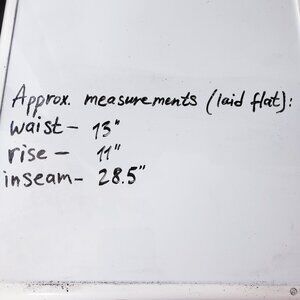 Approx. measurements (laid flat):
waist - 13"
rise - 11"
inseam - 28.5"